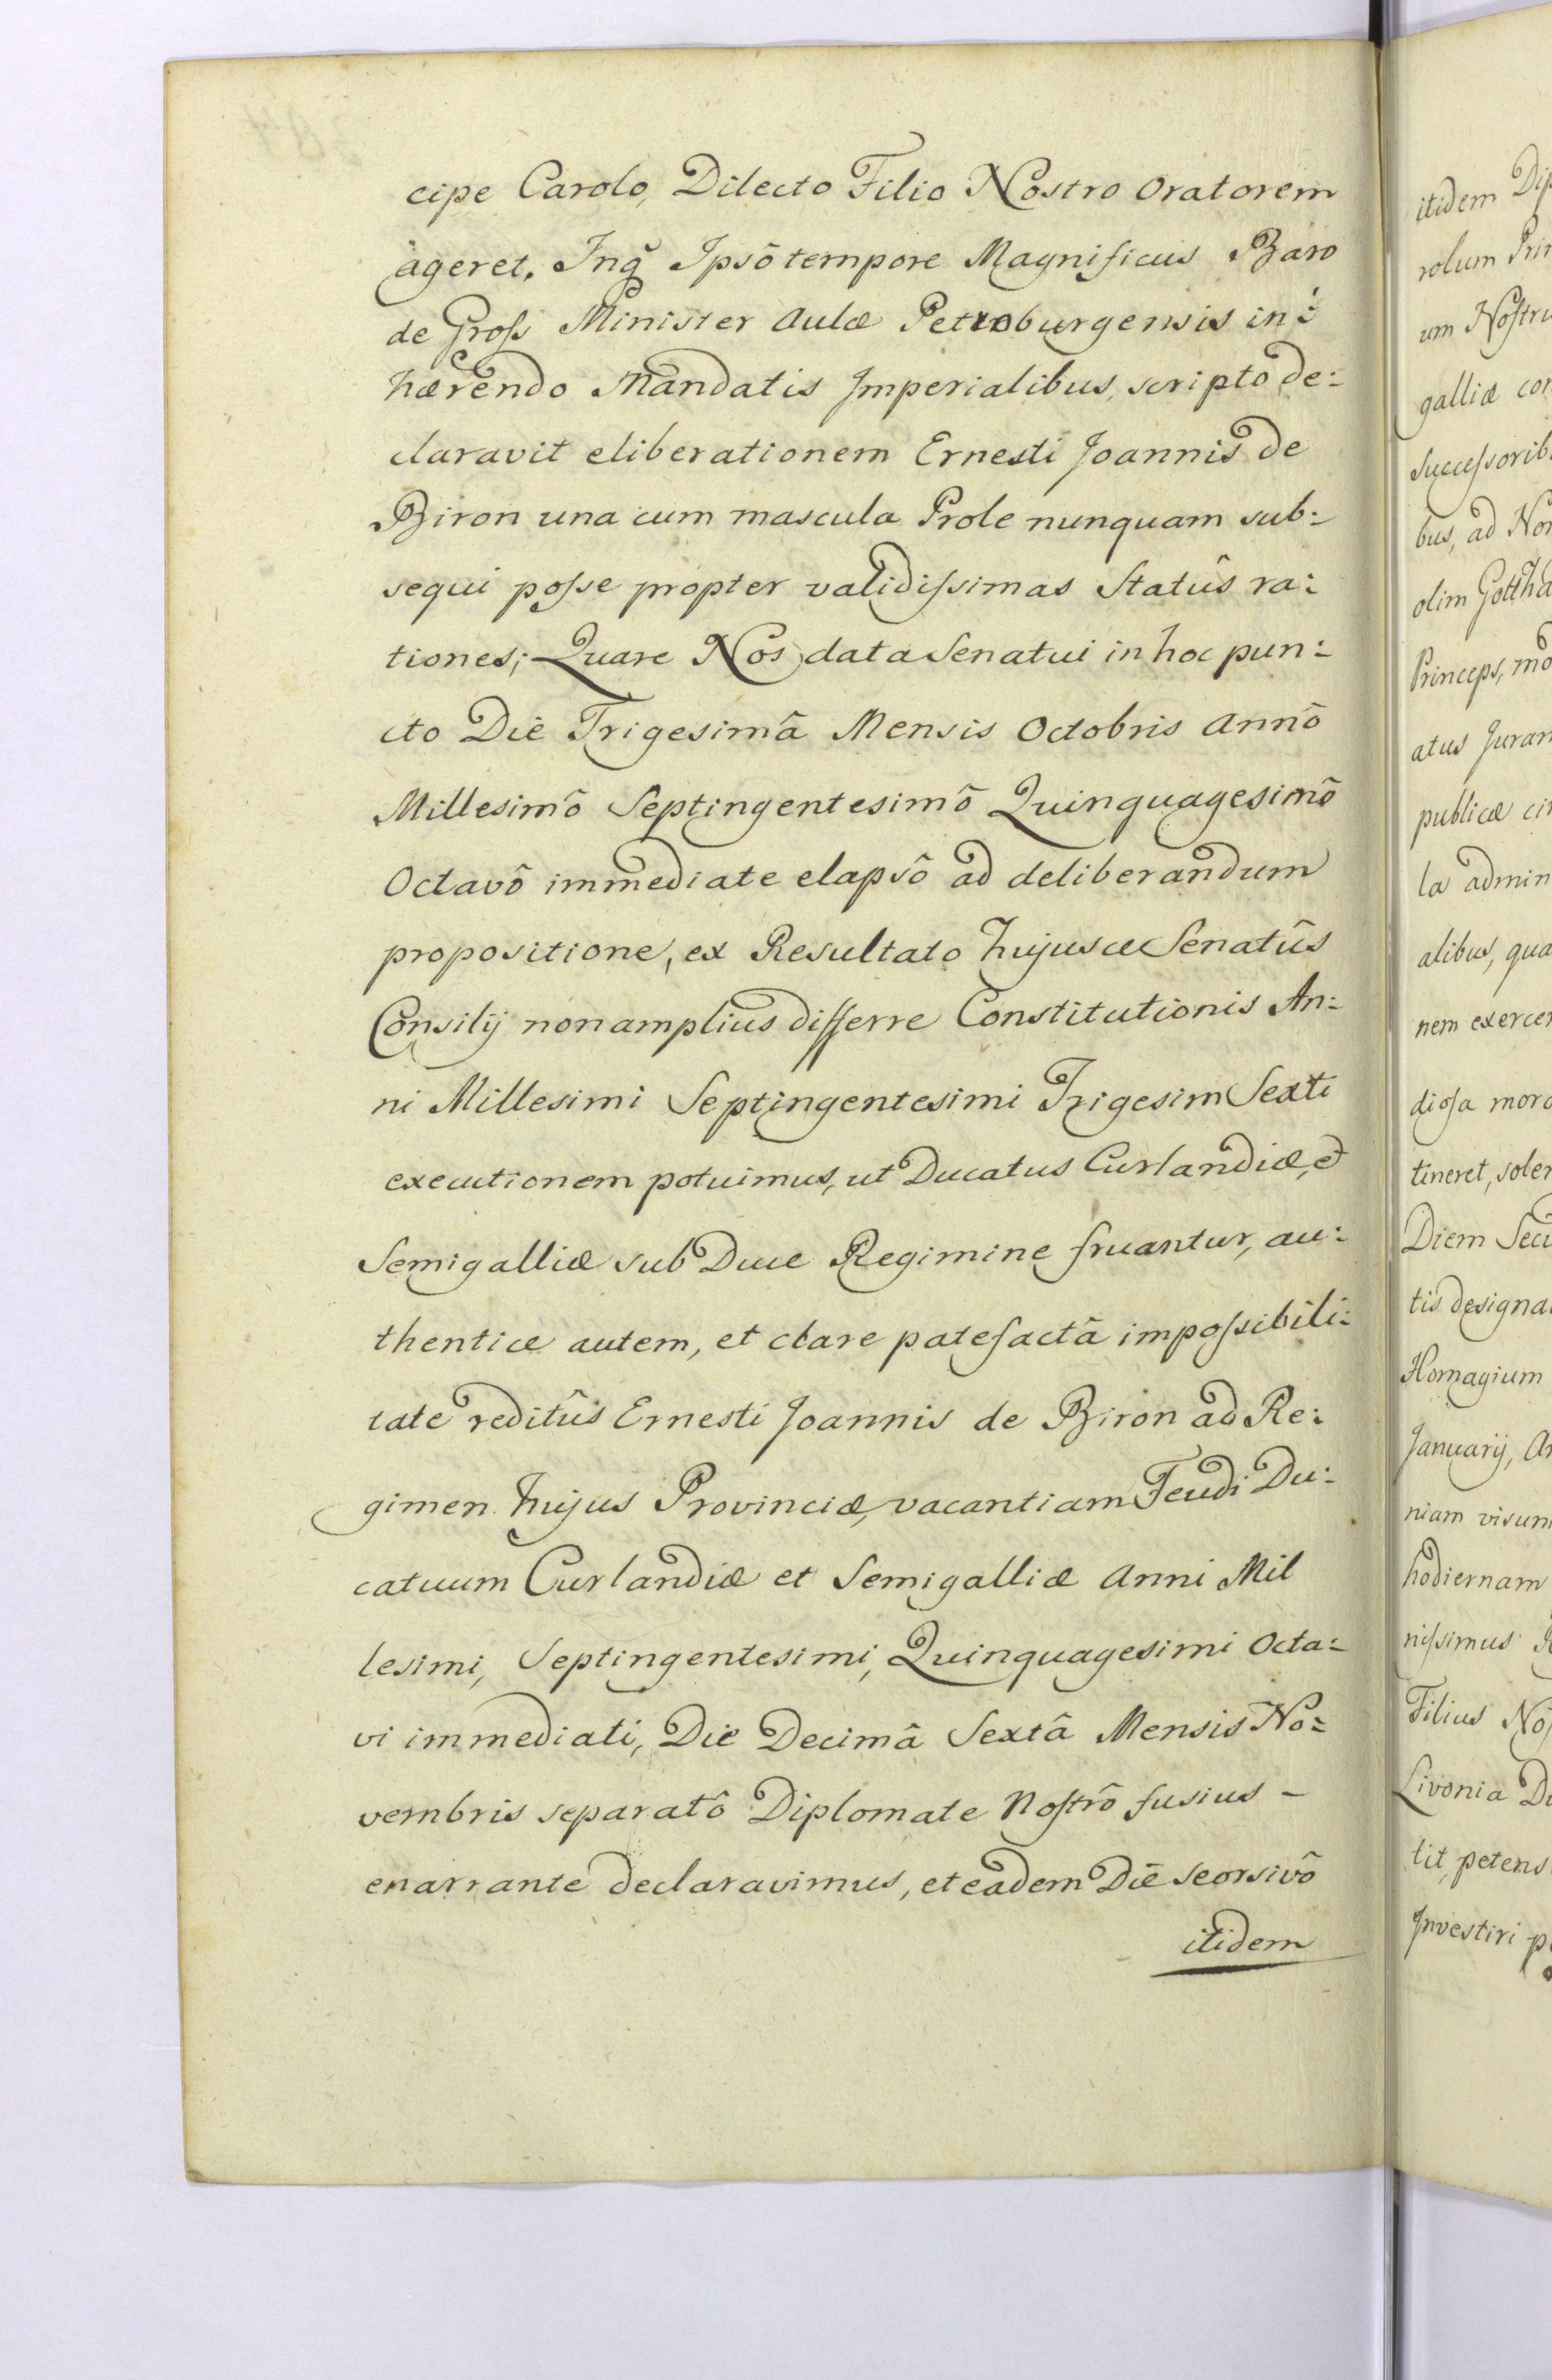 cipe Carolo, Dilecto Filio Nostro Oratorem
ageret. Inq̃ Ipsô tempore Magnificus Baro
de Groſs Minister Aulæ Petroburgensis in:
hærendo Mandatis Imperialibus, scripto de:
claravit eliberationem Ernesti Joannis de
Biron una cum mascula Prole nunquam sub:
sequi poſse propter validiſsimas Statûs ra:
tiones; Quare Nos data Senatui in hoc pun:
cto Die Trigesimâ Mensis Octobris Annô
Millesimô Septingentesimô Quinquagesimô
Octavô immediate elapsô ad deliberandum
propositione, ex Resultato hujusce Senatûs
Consilij non amplius differre Constitutionis An:
ni Millesimi Septingentesimi Trigesim Sexti
executionem potuimus, ut Ducatus Curlandiæ, et
Semigalliæ sub Duce Regimine fruantur, au:
thentice autem, et clare patefactâ impoſsibili:
tate reditûs Ernesti Joannis de Biron ad Re:
gimen hujus Provinciæ, vacantiam Feudi Du:
catuum Curlandiæ et Semigalliæ Anni Mil
lesimi, Septingentesimi, Quinquagesimi Octa:
vi immediati, Die Decimâ Sextâ Mensis No:
vembris separatô Diplomate Noſtrô fusius -
enarrante declaravimus, et eadem Die seorsivô
itidem
itidem Dip
rolum Prin
um Noſtru
galliæ con
Succeſsorib
bus, ad Nor
olim Gottha
Princeps, mo
atus Juram
publicæ cir
la admin
alibus, qua
nem exercen
dioſa mora
tineret, solen
Diem Secu
tis designa
Homagium
Januarij, An
niam visum
hodiernam
niſsimus
Filius Noſ
Livonia Du
tit, petens
Investiri p